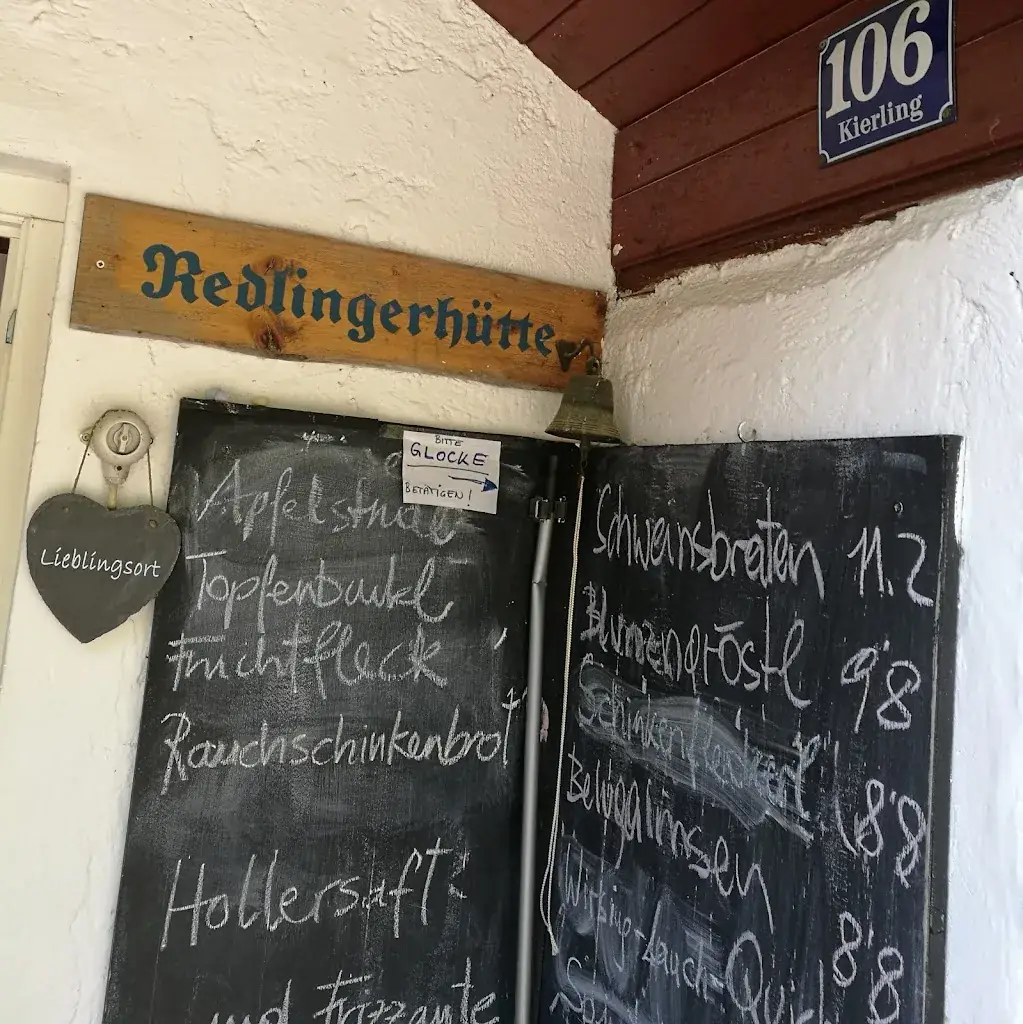 106
Kierling
Redlingerhütte
BITTE
GLOCKE
BETÄTIGEN!
Lieblingsort
Apfelstrudel
Topfenbuukl
Fruchtfleck
Rauchschinkenbrot
Hollersaft
und Frizzante
Schweinsbraten 11.2
Blunzengröstl 9'8
Schinkenfleckerl 8'8
Belugalinsen
Wirsing-Lauch-Quiche 8'8